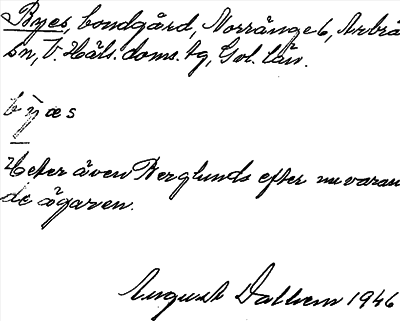 Byes, bondgård, Norränge 6, Arbrå
sn, V. Häls. doms. tg, Gvl. län.
byæs
Heter även Berglunds efter nuvaran
de ägaren.
August Dallven 1946